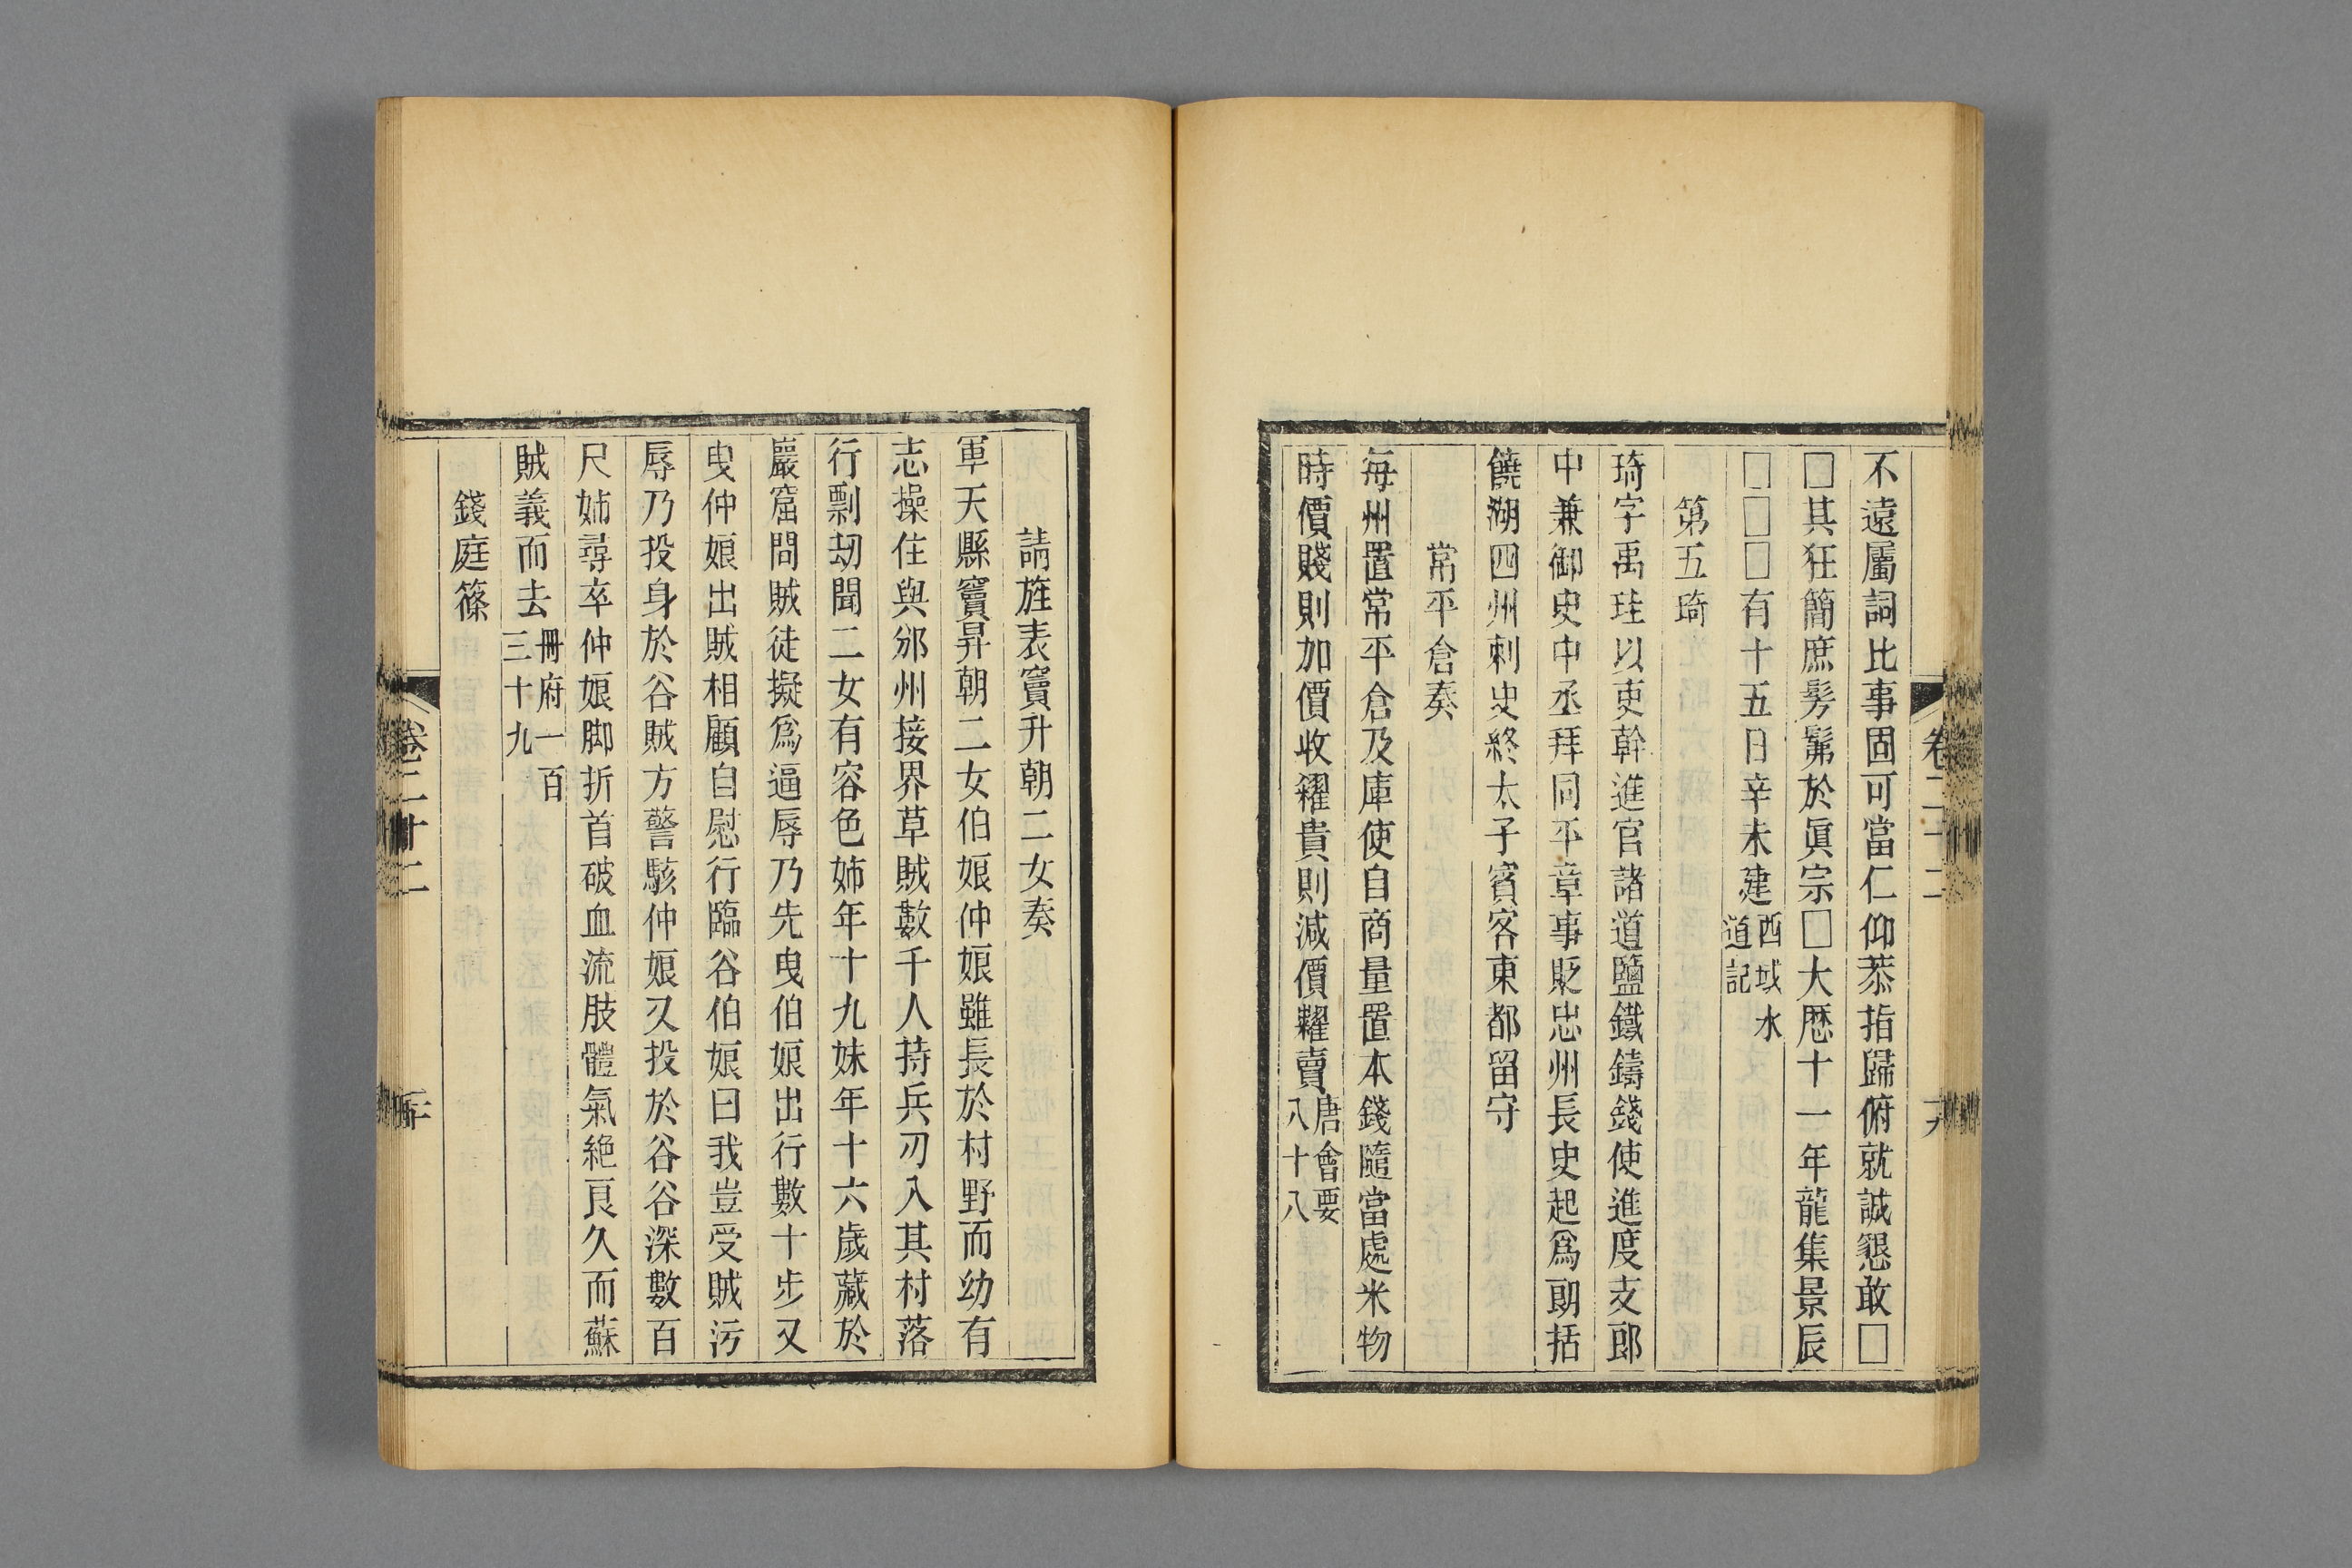 不遠屬詞比事固可當仁仰恭指歸俯就誠懇敢□
□其狂簡庶髣髴於眞宗□大歷十一年龍集景辰
□□□有十五日辛未建西域水道記
第五琦
琦字禹珪以吏幹進官諸道鹽鐵鑄錢使進度支郎
中兼御史中丞拜同平章事貶忠州長史起爲朗括
饒湖四州刺史終太子賓客東都留守
常平倉奏
每州置常平倉及庫使自商量置本錢隨當處米物
時價賤則加價收糴貴則減價糶賣唐會要八十八
請旌表竇升朝二女奏
軍天縣竇昇朝二女伯娘仲娘雖長於村野而幼有
志操住與邠州接界草賊數千人持兵刃入其村落
行剽刼聞二女有容色姊年十九妹年十六歲藏於
巖窟間賊徒擬爲逼辱乃先曳伯娘出行數十步又
曳仲娘出賊相顧自慰行臨谷伯娘曰我豈受賊污
辱乃投身於谷賊方警駭仲娘又投於谷谷深數百
尺姊尋卒仲娘脚折首破血流肢體氣絶良久而蘇
賊義而去冊府一百三十九
錢庭篠
卷二十二